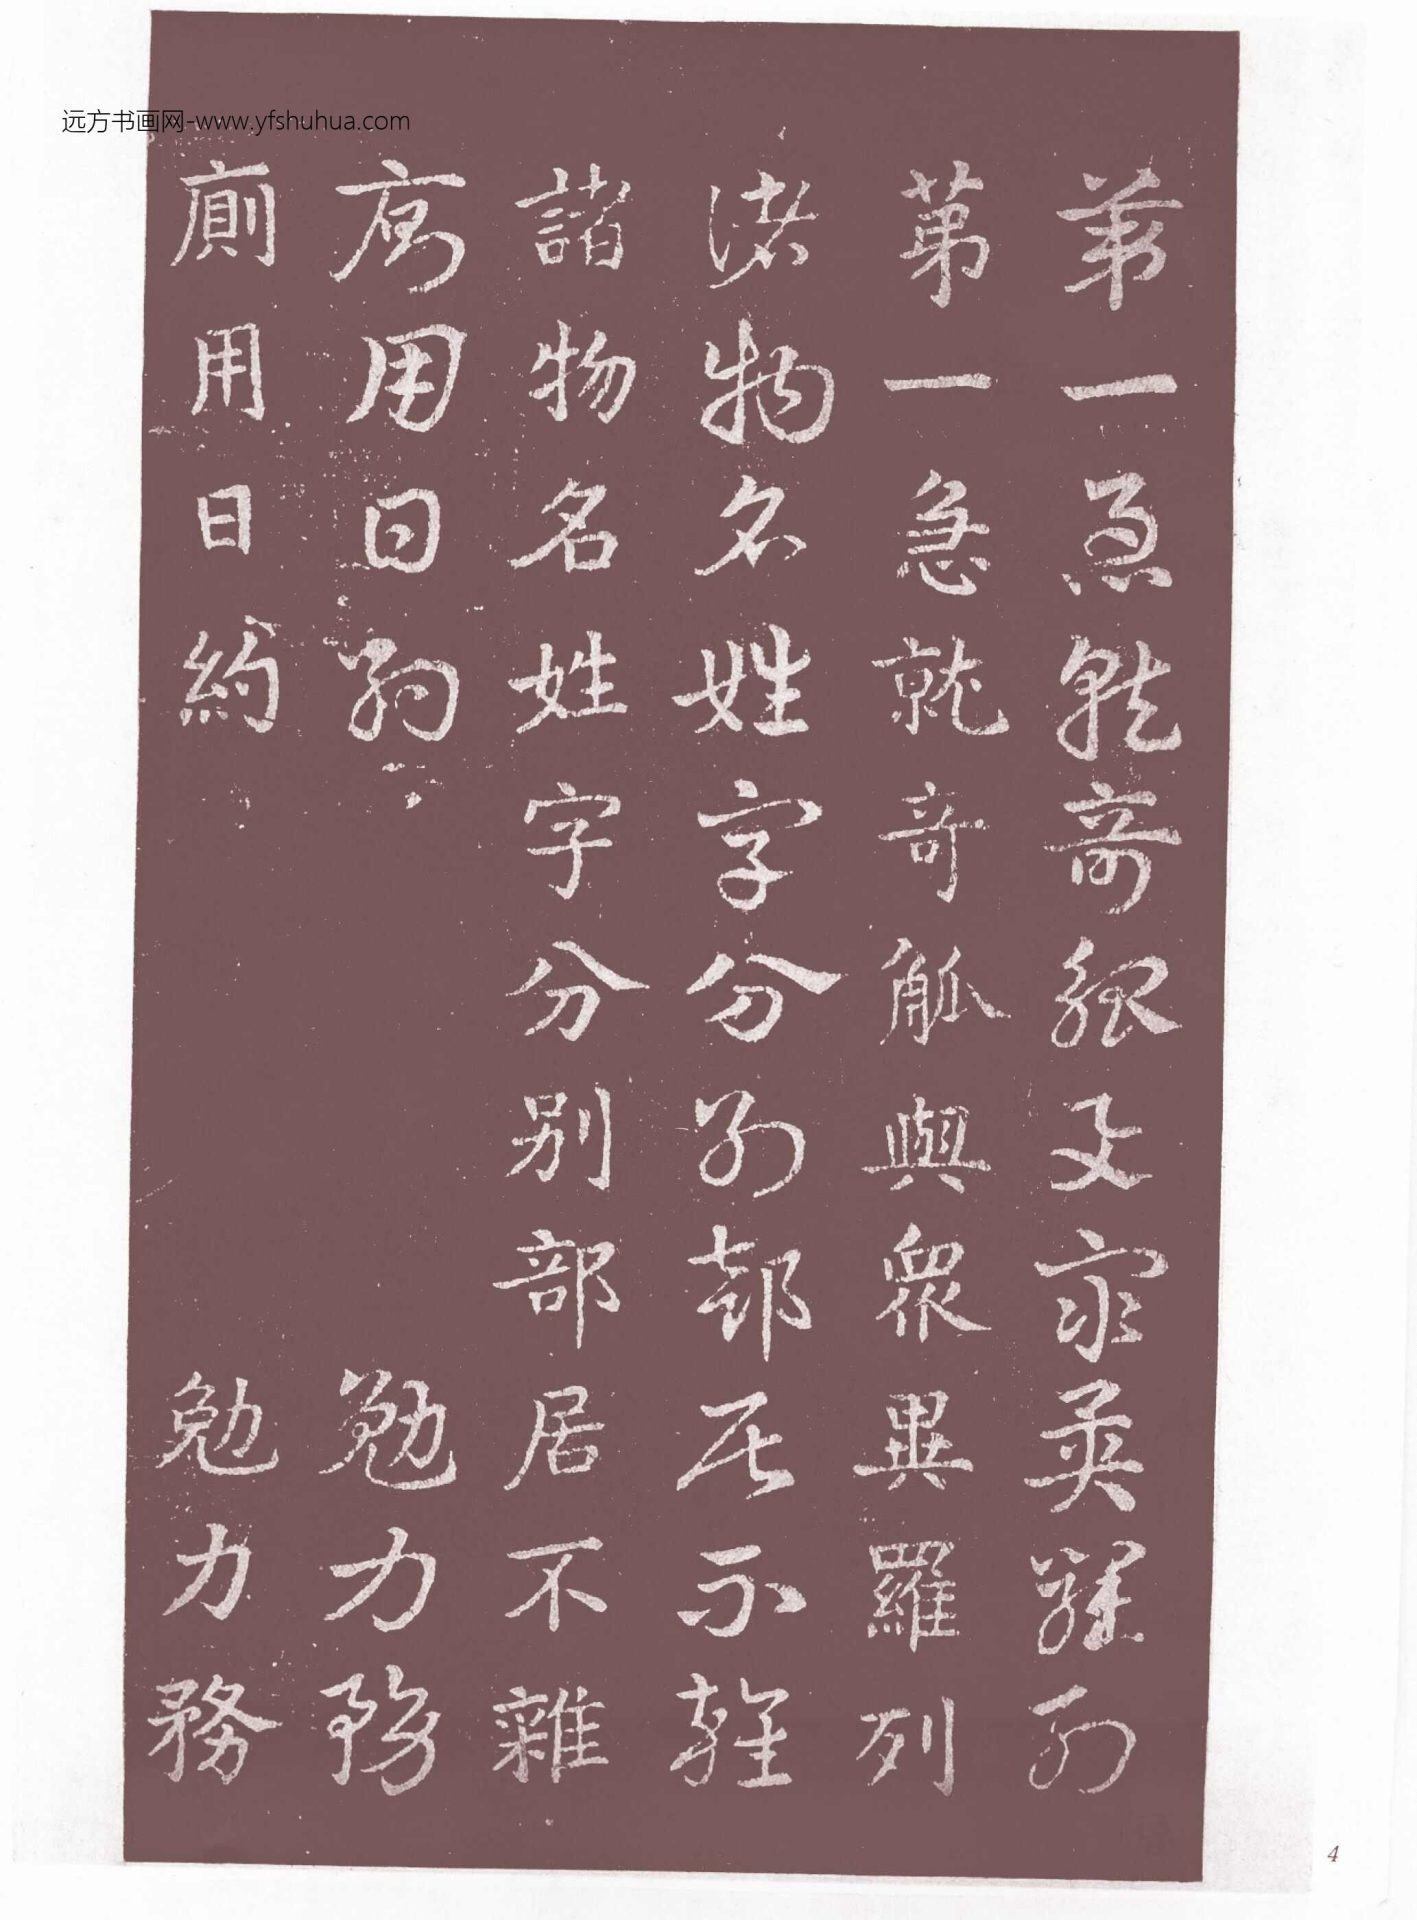 远方书画网-www.yfshuhua.com
第一急就奇觚與衆異羅列
第一急就奇觚與衆異羅列
諸物名姓字分别部居不雜
諸物名姓字分别部居不雜
廁用日約 勉力務
廁用日約 勉力務
4